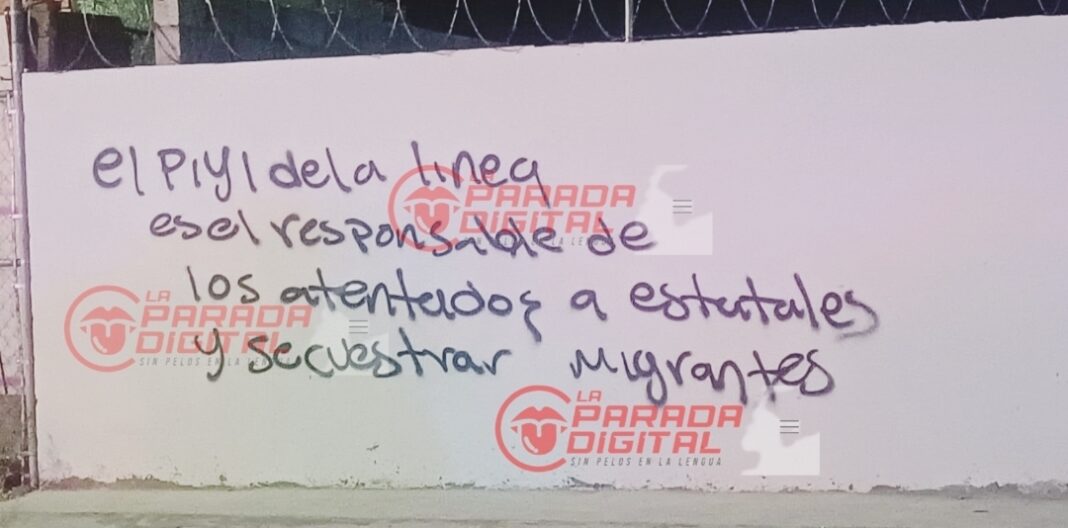 el PiYI dela linea
es el responsable de
los atentados a estatales
y secuestrar migrantes
LA
PARADA
DIGITAL
SIN PELOS EN LA LENGUA
LA
PARADA
DIGITAL
SIN PELOS EN LA LENGUA
LA
PARADA
DIGITAL
SIN PELOS EN LA LENGUA